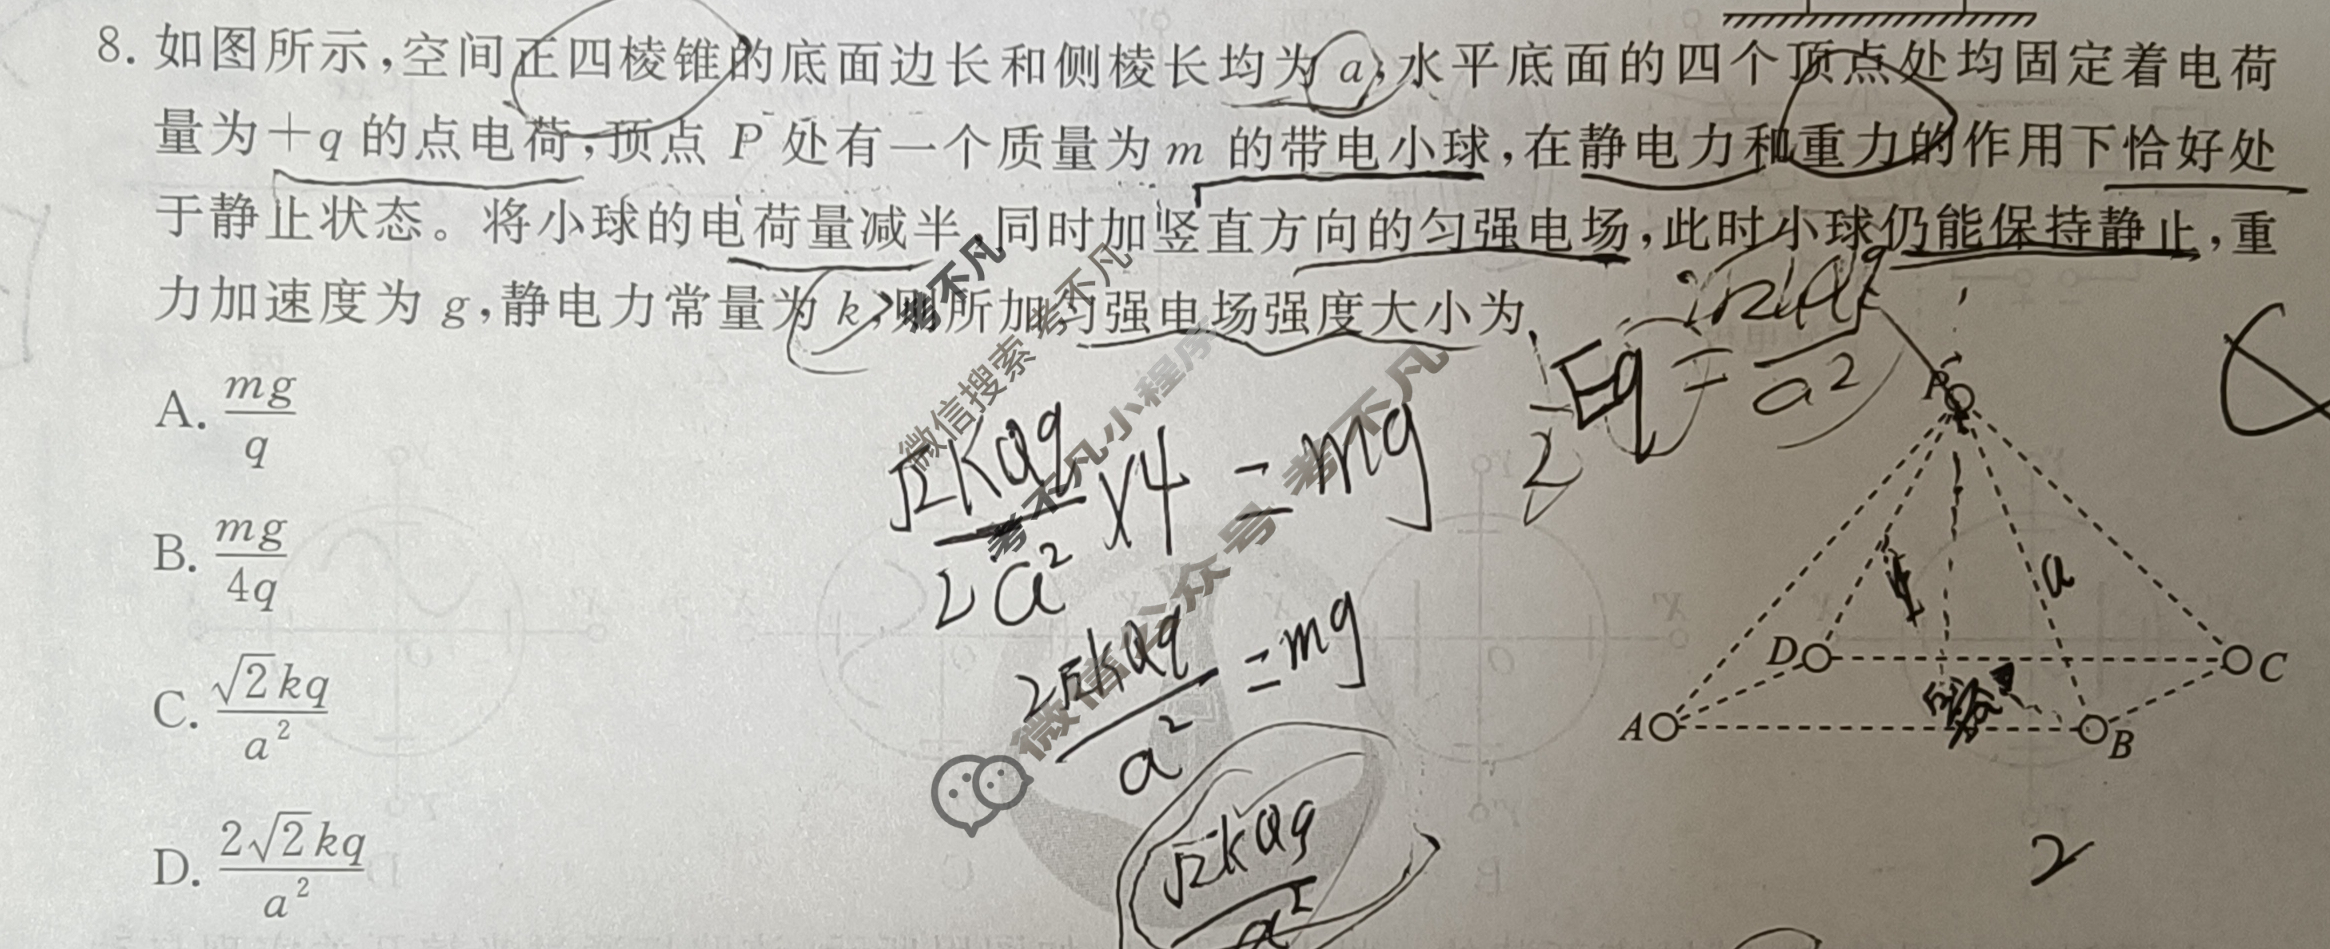 8. 如图所示,空间正四棱锥的底面边长和侧棱长均为 a,水平底面的四个顶点处均固定着电荷
量为+q 的点电荷,顶点 P 处有一个质量为 m 的带电小球,在静电力和重力的作用下恰好处
于静止状态。将小球的电荷量减半,同时加竖直方向的匀强电场,此时小球仍能保持静止,重
力加速度为 g,静电力常量为 k,则所加匀强电场强度大小为
A. mg/q
B. mg/4q
C. √2kq/a²
D. 2√2kq/a²
√2kQq/2a² ×4 = mg
2√2kQq/a² = mg
√2kQq/a²
Eq = √2kQq/a²
2
P
a
D
C
A
B
2
考不凡
考不凡
微信搜索
考不凡小程序
微信公众号 考不凡